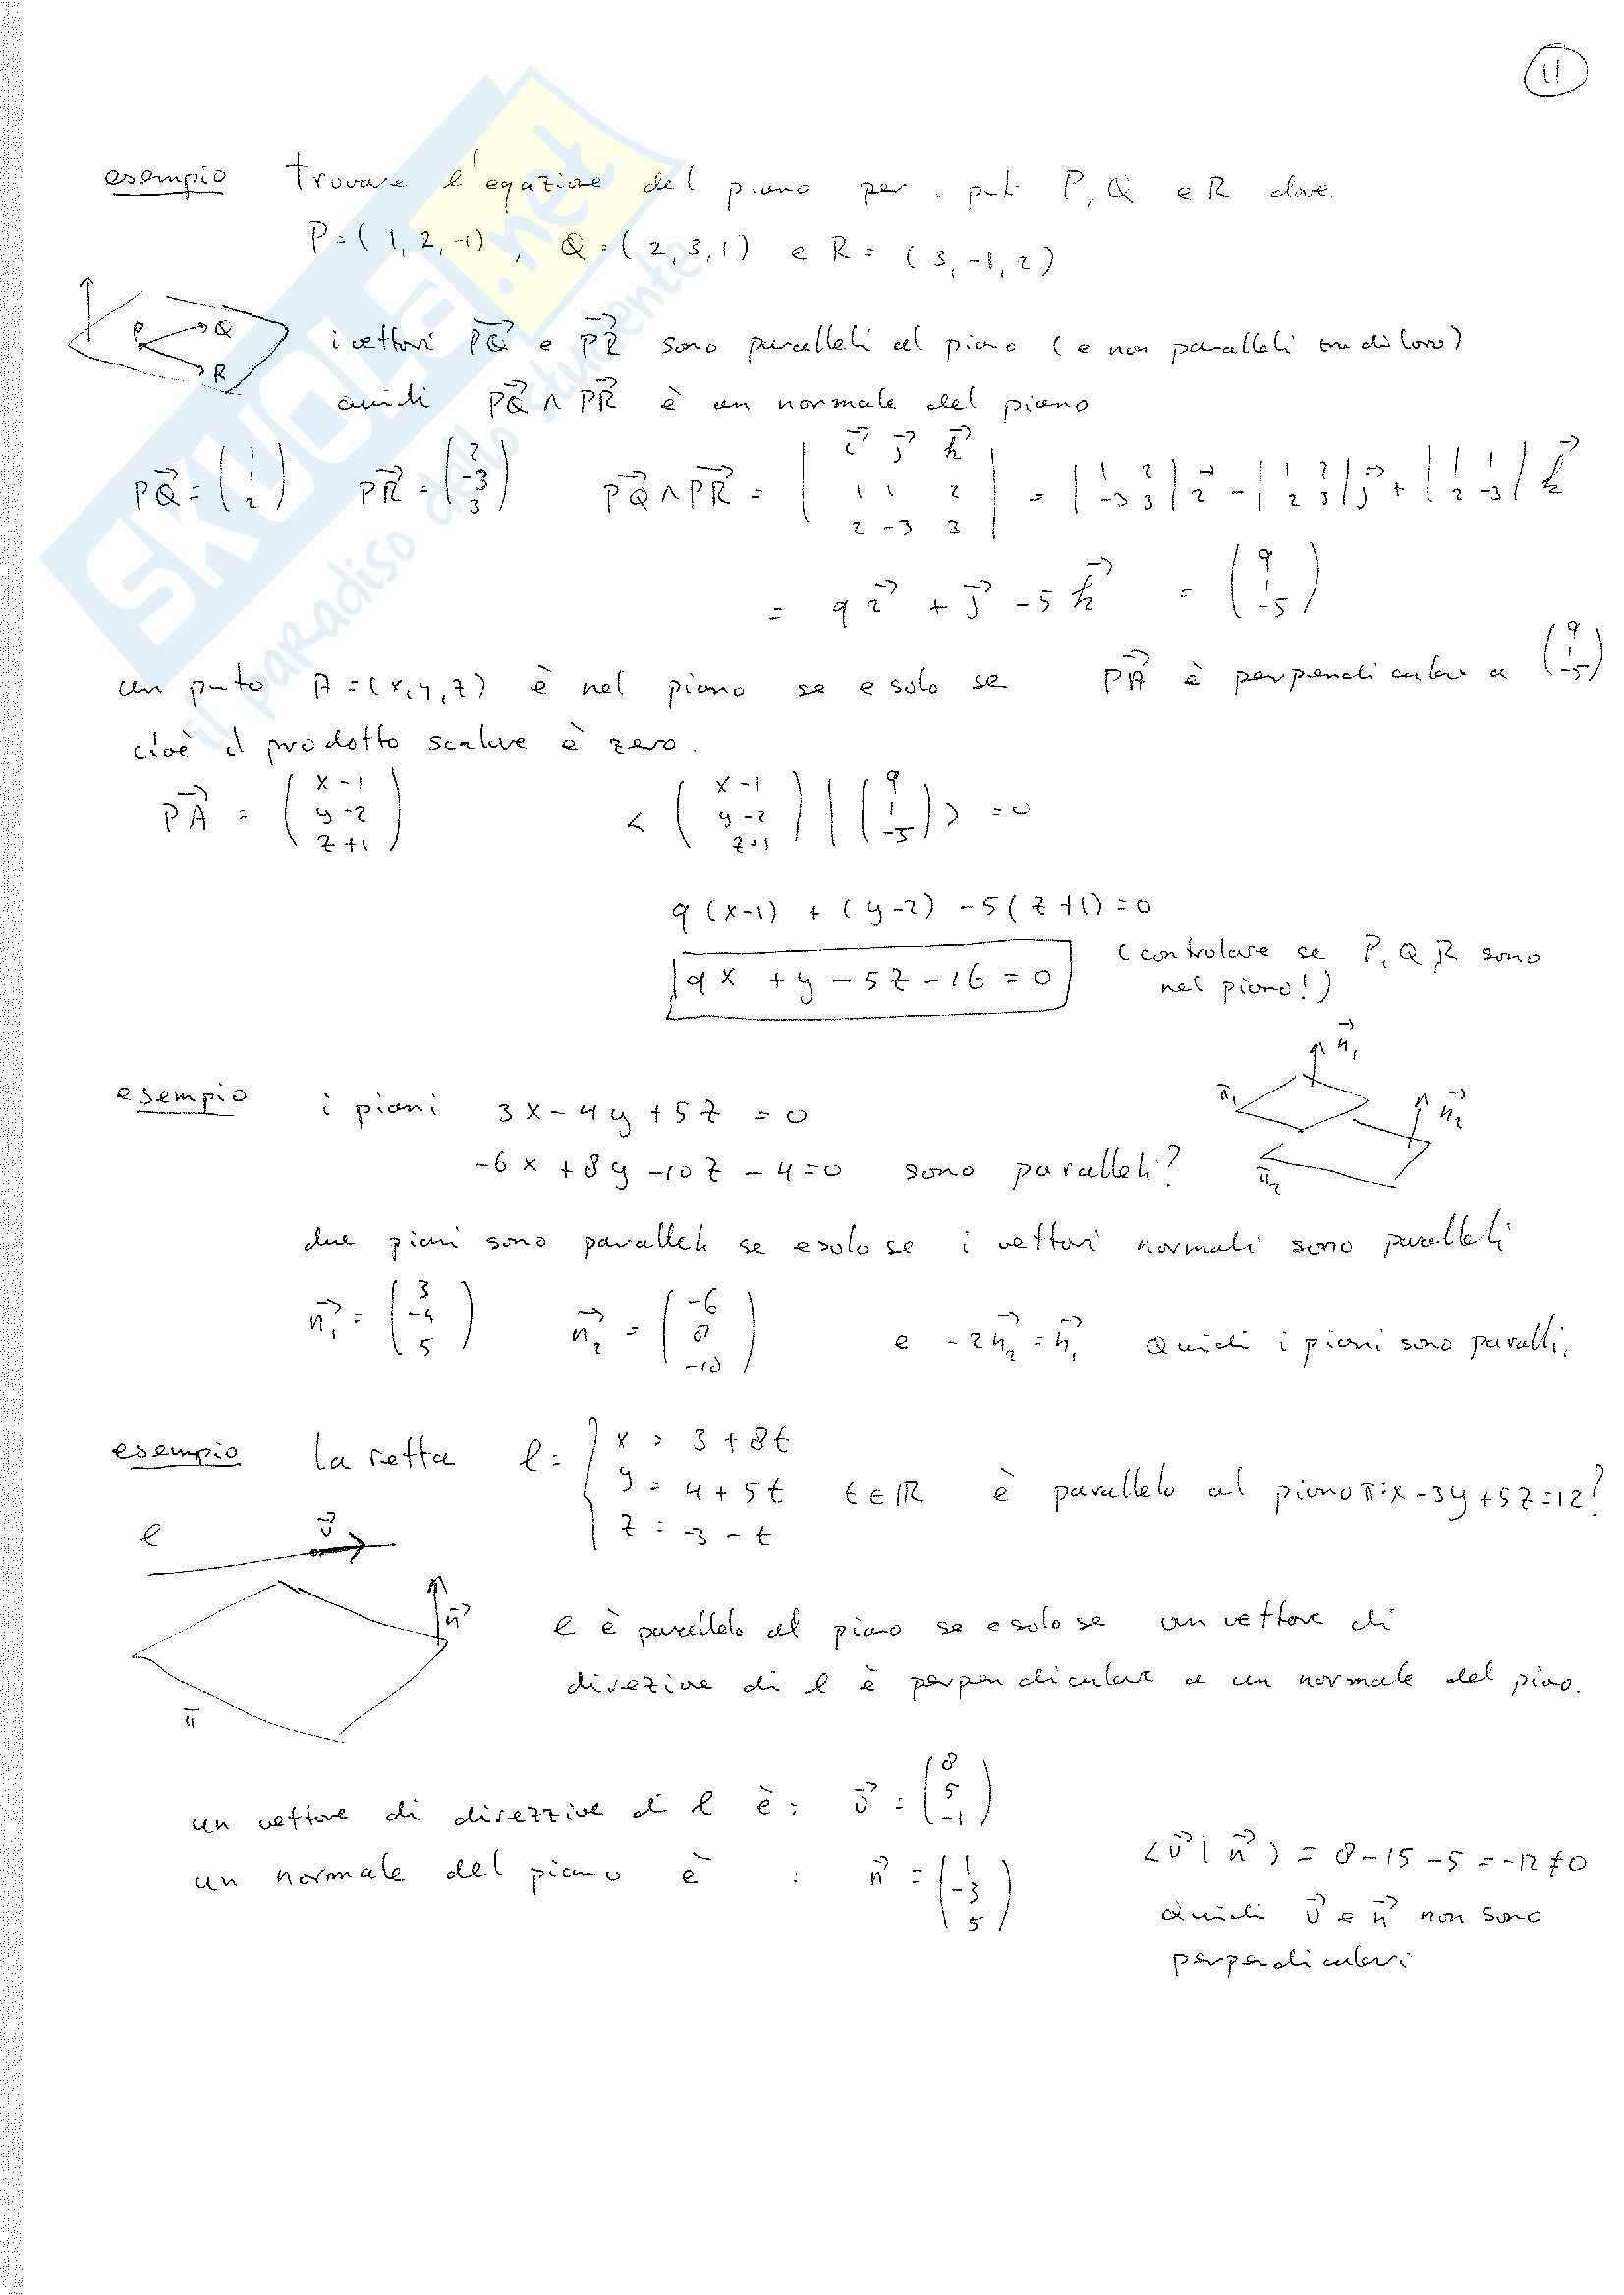 11
esempio Trovare l'eqazione del piano per i pnti P, Q e R dove
P=(1,2,-1), Q=(2,3,1) e R=(3,-1,2)
P Q R
i vettori PQ→ e PR→ sono paralleli al piano (e non paralleli tra di loro)
quindi PQ→ ∧ PR→ è un normale del piano
PQ→ = (1 1 2) PR→ = (2 -3 3) PQ→ ∧ PR→ = | i→ j→ k→ ; 1 1 2 ; 2 -3 3 | = | 1 2 ; -3 3 | i→ - | 1 2 ; 2 3 | j→ + | 1 1 ; 2 -3 | k→
= 9 i→ + j→ - 5 k→ = (9 1 -5)
un pnto A=(x,y,z) è nel piano se e solo se PA→ è perpendicular a (9 1 -5)
cioè il prodotto scalare è zero.
PA→ = (x-1 y-2 z+1) < (x-1 y-2 z+1) | (9 1 -5) > = 0
9(x-1) + (y-2) - 5(z+1) = 0
9x + y - 5z - 16 = 0 (controlare se P, Q, R sono
nel piano!)
esempio i piani 3x - 4y + 5z = 0
-6x + 8y - 10z - 4 = 0 sono paralleli?
π1 n1→ π2 n2→
due piani sono paralleli se e solo se i vettori normali sono paralleli
n1→ = (3 -4 5) n2→ = (-6 8 -10) e -2n2→ = n1→ Quindi i piani sono paralli.
esempio la retta l = { x = 3 + 8t
y = 4 + 5t t∈ℝ è parallelo al piano π: x - 3y + 5z = 12?
z = -3 - t
l v→
n→
π
l è parallelo al piano se e solo se un vettore di
direzione di l è perpendicular a un normale del piano.
un vettore di direzzione di l è: v→ = (8 5 -1)
un normale del piano è : n→ = (1 -3 5)
<v→ | n→> = 8 - 15 - 5 = -12 ≠ 0
Quindi v→ e n→ non sono
perpendiculari
SKUOLA.net
il paradiso dello studente